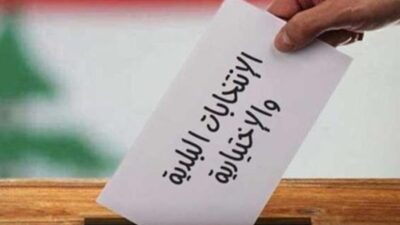 الإنتخابات البلدية
والإختيارية